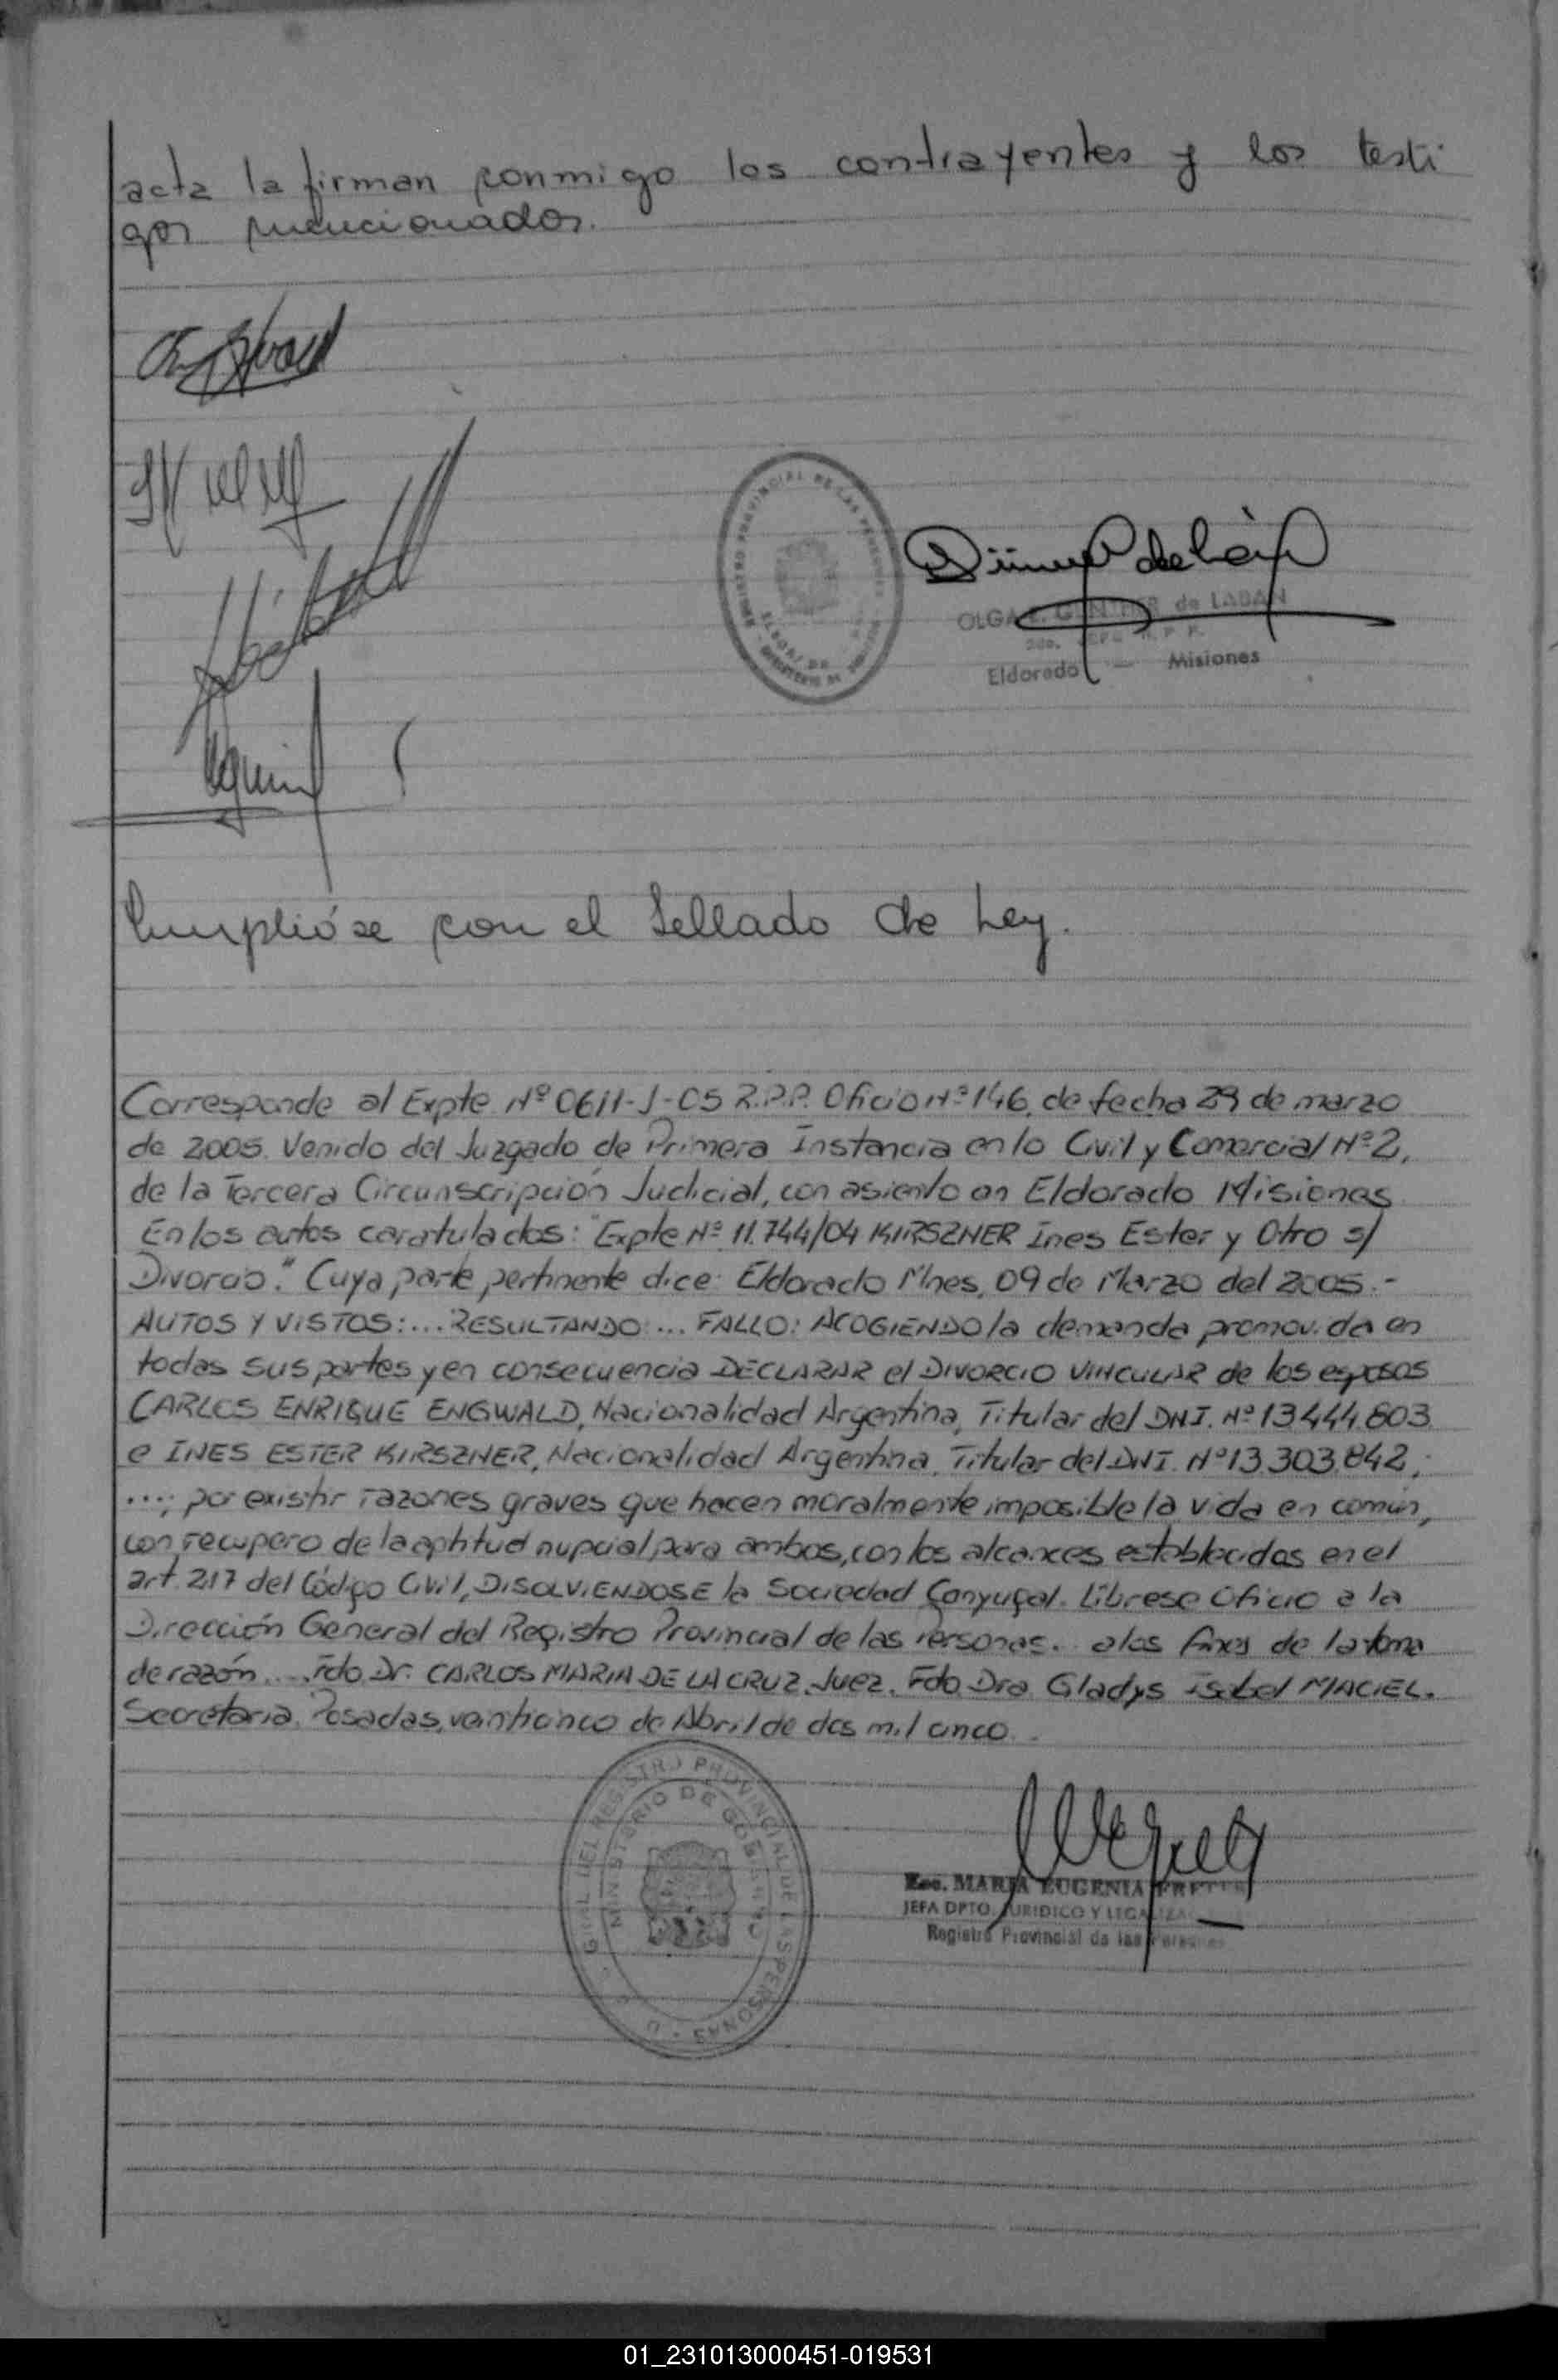 acta la firman conmigo los contrayentes y los testi
gos mencionados.
REGISTRO PROVINCIAL DE LAS PERSONAS
OLGA GÜNTHER de LABAN
Eldorado — Misiones
Cumplióse con el Sellado de Ley.
Corresponde al Expte Nº 0611-J-05 R.P.P. Oficio Nº 146, de fecha 29 de marzo
de 2005. Venido del Juzgado de Primera Instancia en lo Civil y Comercial Nº 2,
de la Tercera Circunscripción Judicial, con asiento en Eldorado Misiones
En los autos caratulados: "Expte Nº 11.744/04 KIRSZNER Ines Ester y Otro s/
Divorcio." Cuya parte pertinente dice: Eldorado Mnes, 09 de Marzo del 2005.-
AUTOS Y VISTOS:... RESULTANDO:... FALLO: ACOGIENDO la demanda promovida en
todas sus partes y en consecuencia DECLARAR el DIVORCIO VINCULAR de los esposos
CARLOS ENRIQUE ENGWALD, Nacionalidad Argentina, Titular del DNI. Nº 13.444.603
e INES ESTER KIRSZNER, Nacionalidad Argentina, Titular del DNI. Nº 13.303.842;
...; por existir razones graves que hacen moralmente imposible la vida en común,
con recupero de la aptitud nupcial para ambos, con los alcances establecidos en el
art. 217 del Código Civil, DISOLVIENDOSE la Sociedad Conyugal. Líbrese Oficio a la
Dirección General del Registro Provincial de las Personas... a los fines de la toma
de razón.... Fdo Dr. CARLOS MARIA DE LA CRUZ. Juez. Fdo. Dra. Gladys Isabel MACIEL.
Secretaria. Posadas, veinticinco de Abril de dos mil cinco.
GRAL DEL REGISTRO PROVINCIAL DE LAS PERSONAS
MINISTERIO DE GOBIERNO
Esc. MARIA EUGENIA
JEFA DPTO. JURIDICO Y
Registro Provincial de las Personas
01_231013000451-019531